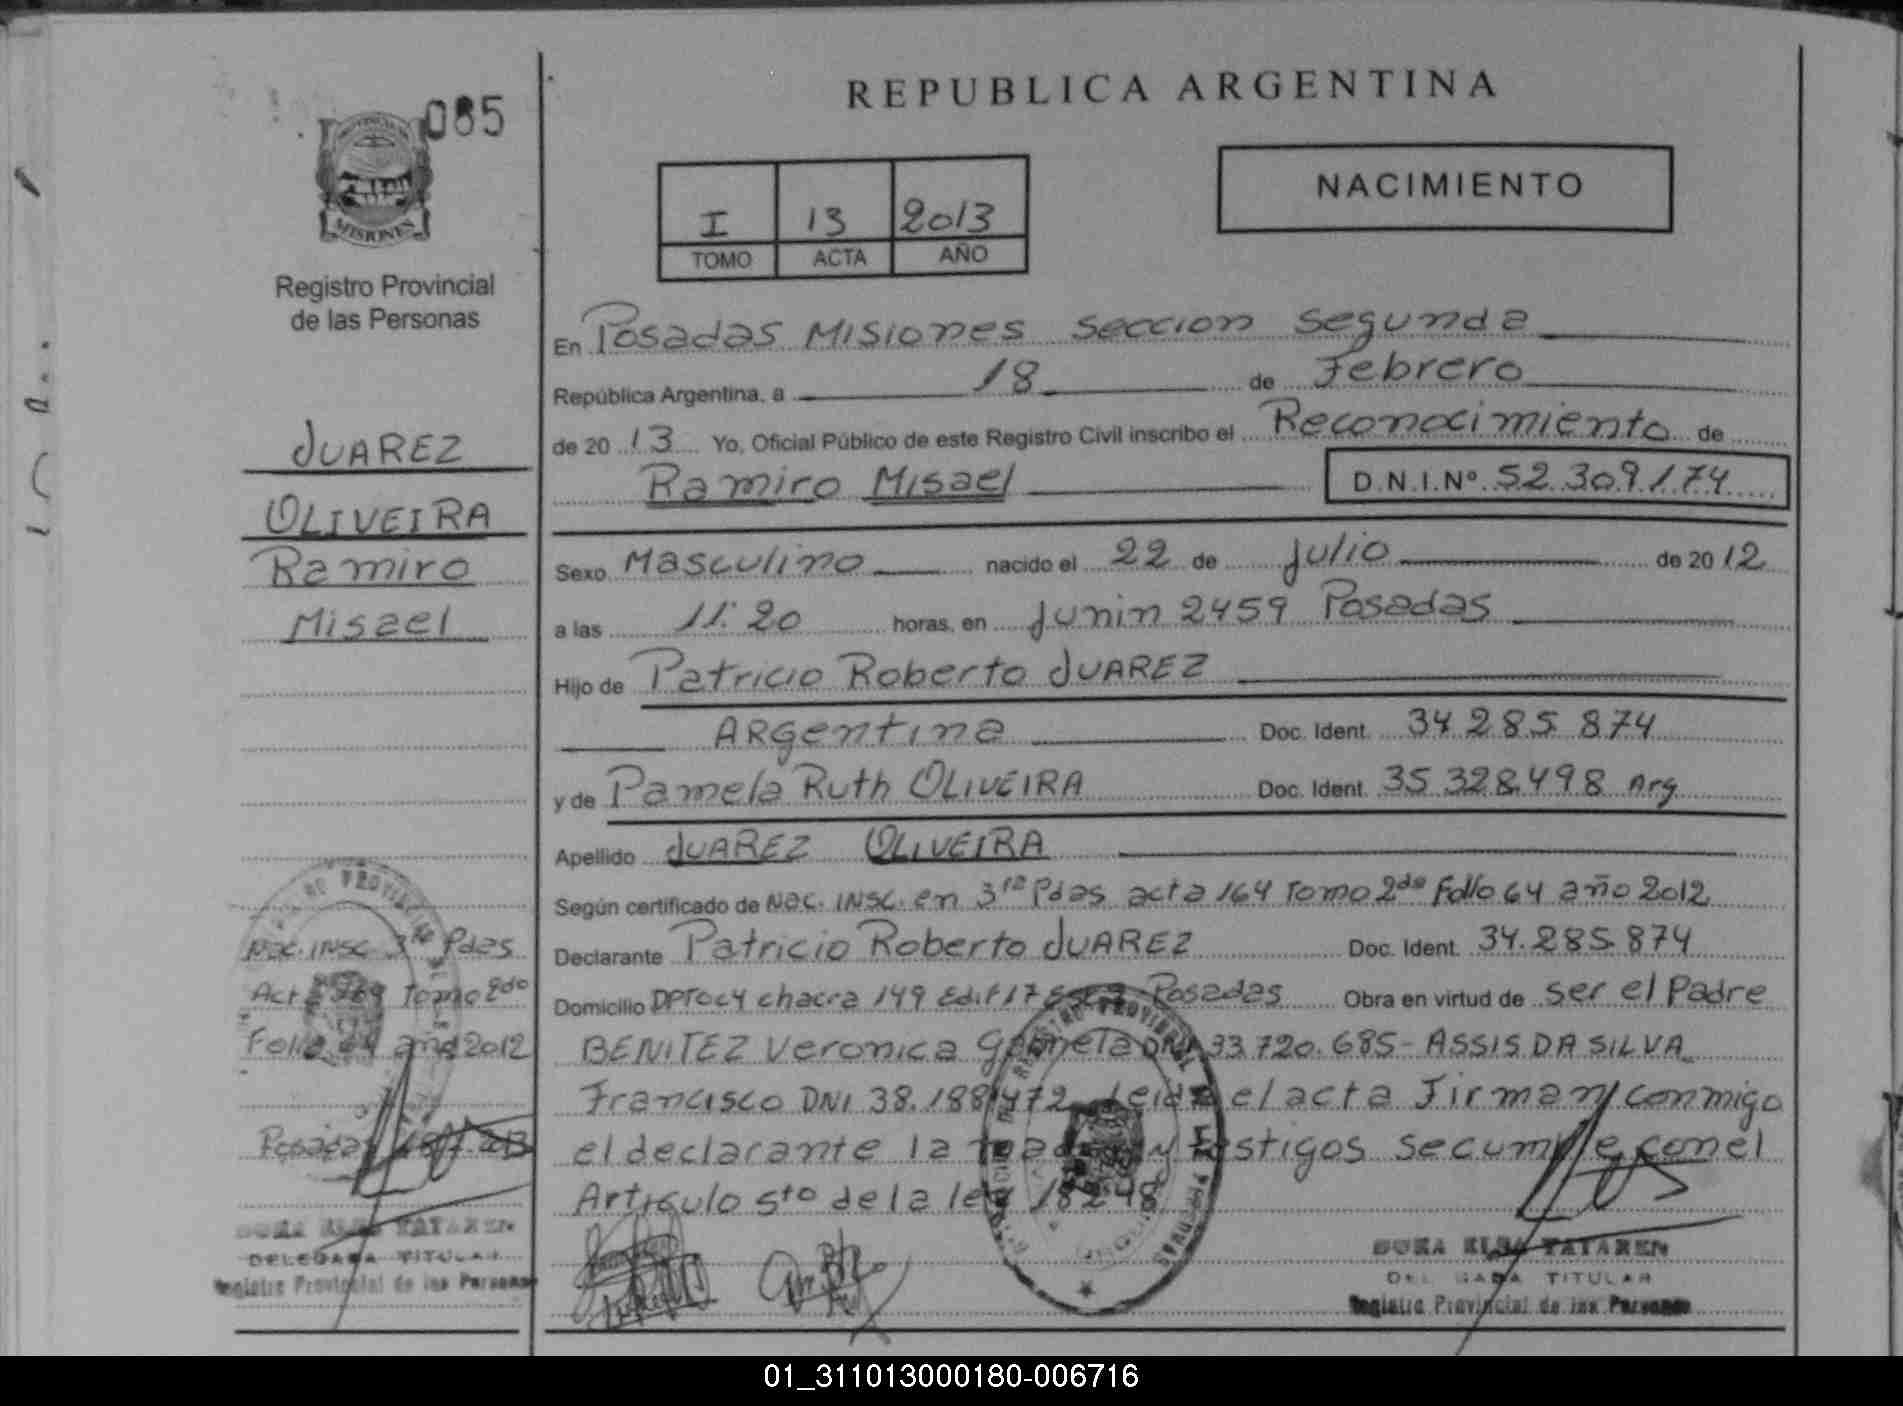 085
MISIONES
Registro Provincial
de las Personas
JUAREZ
OLIVEIRA
Ramiro
Misael
Nac. INSC 3ra Pdas
Acta 164 Tomo 2do
Folio 64 año 2012
Posadas
DELEGADA TITULAR
Registro Provincial de las Personas
REPUBLICA ARGENTINA
I 13 2013
TOMO ACTA AÑO
NACIMIENTO
En Posadas Misiones seccion segunda
República Argentina, a 18 de Febrero
de 2013 Yo, Oficial Público de este Registro Civil inscribo el Reconocimiento de
Ramiro Misael D.N.I.Nº 52.309.174
Sexo Masculino nacido el 22 de julio de 2012
a las 11:20 horas, en Junin 2459 Posadas
Hijo de Patricio Roberto JUAREZ
Argentina Doc. Ident. 34.285.874
y de Pamela Ruth OLIVEIRA Doc. Ident. 35.328.498 Arg
Apellido JUAREZ OLIVEIRA
Según certificado de Nac. INSC. en 3ra Pdas acta 164 Tomo 2do Folio 64 año 2012
Declarante Patricio Roberto JUAREZ Doc. Ident. 34.285.874
Domicilio DPTO C4 chacra 149 Edif 17 Posadas Obra en virtud de ser el Padre
BENITEZ Veronica DNI 33.720.685 - ASSIS DA SILVA
Francisco DNI 38.188.472 Leida el acta Firman conmigo
el declarante la madre y testigos se cumple con el
Articulo 5to de la ley 18248
DELEGADA TITULAR
Registro Provincial de las Personas
01_311013000180-006716